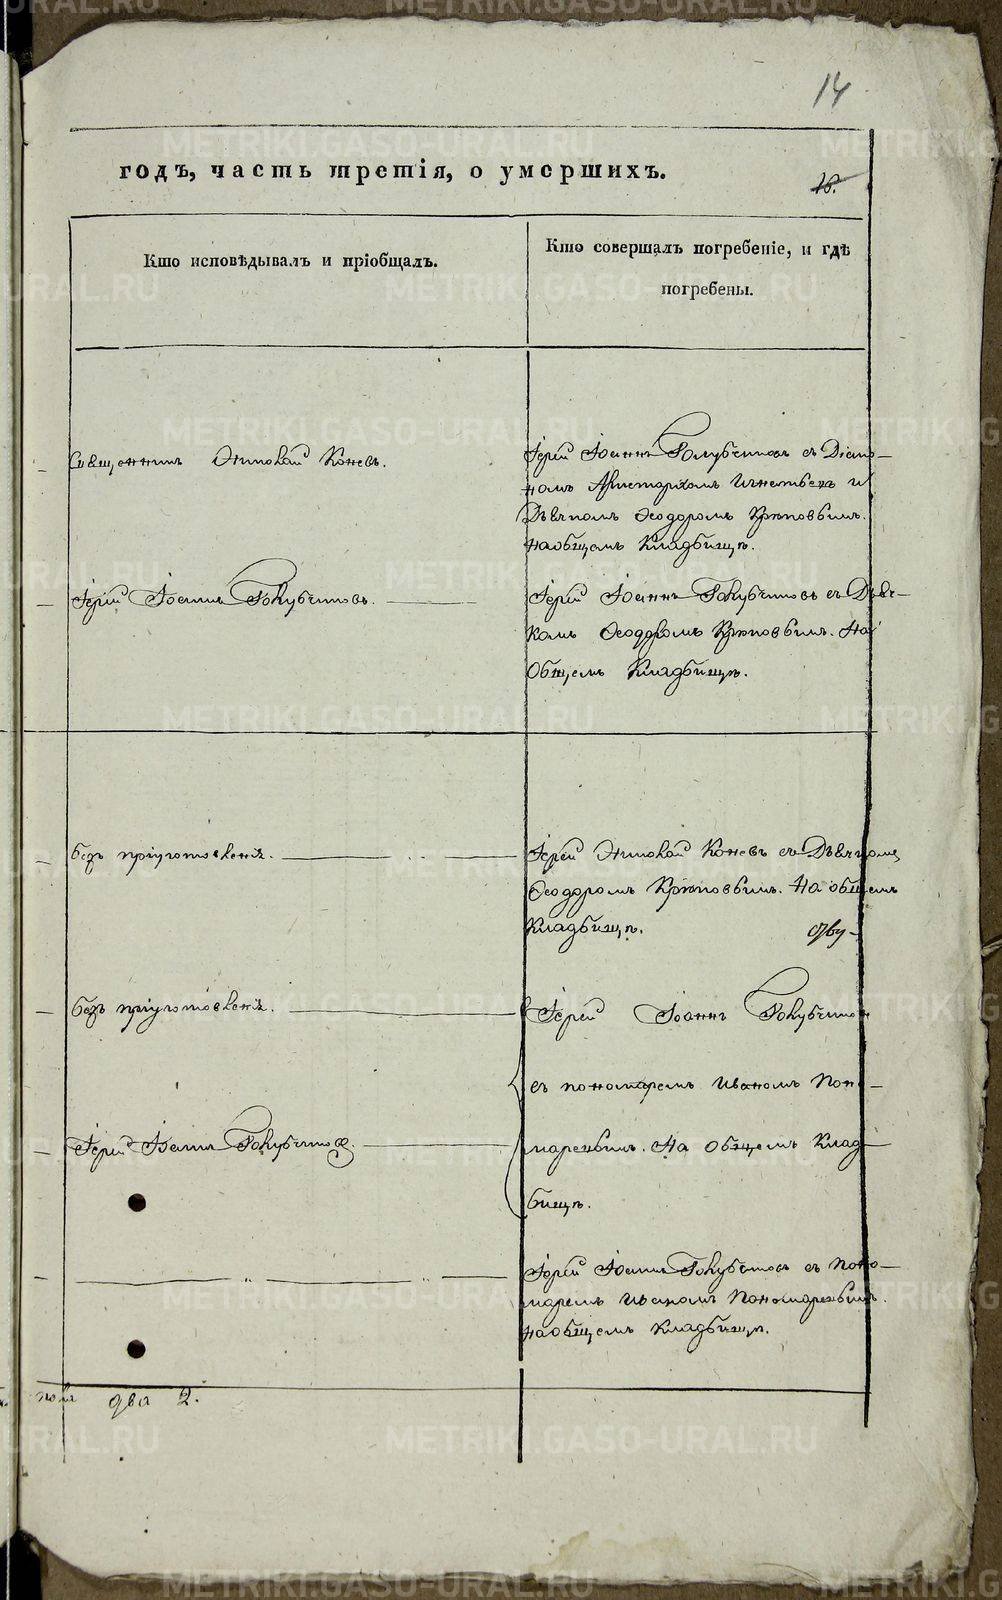 14
годъ, часть третія, о умершихъ.
18.
Кто исповѣдывалъ и пріобщалъ.
Кто совершалъ погребеніе, и гдѣ
погребены.
Священникъ Николай Коневъ.
Іерей Іоаннъ Голубчиковъ съ Діако-
номъ Аристархомъ и
Дьячкомъ Ѳеодоромъ Крюковымъ.
На общемъ Кладбищѣ.
Іерей Іоаннъ Голубчиковъ.
Іерей Іоаннъ Голубчиковъ съ Дьяч-
комъ Ѳеодоромъ Крюковымъ. На
Общемъ Кладбищѣ.
безъ приуготовленія.
Іерей Николай Коневъ съ Дьячкомъ
Ѳеодоромъ Крюковымъ. На общемъ
Кладбищѣ.
безъ приуготовленія.
Іерей Іоаннъ Голубчиков
съ пономаремъ Иваномъ Поно-
Іерей Іоаннъ Голубчиков.
маревымъ. На Общемъ Клад-
бищѣ.
Іерей Іоаннъ Голубчиковъ съ поно-
маремъ Иваномъ Пономаревымъ.
На общемъ Кладбищѣ.
пола два 2.
METRIKI.GASO-URAL.RU